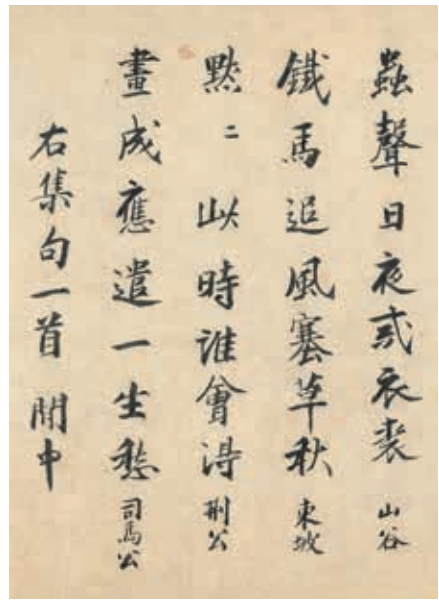 蟲聲日夜戒衣裘 山谷
鐵馬追風塞草秋 東坡
黙〻此時誰會得 刑公
畫成應遣一生愁 司馬公
右集句一首 閒中